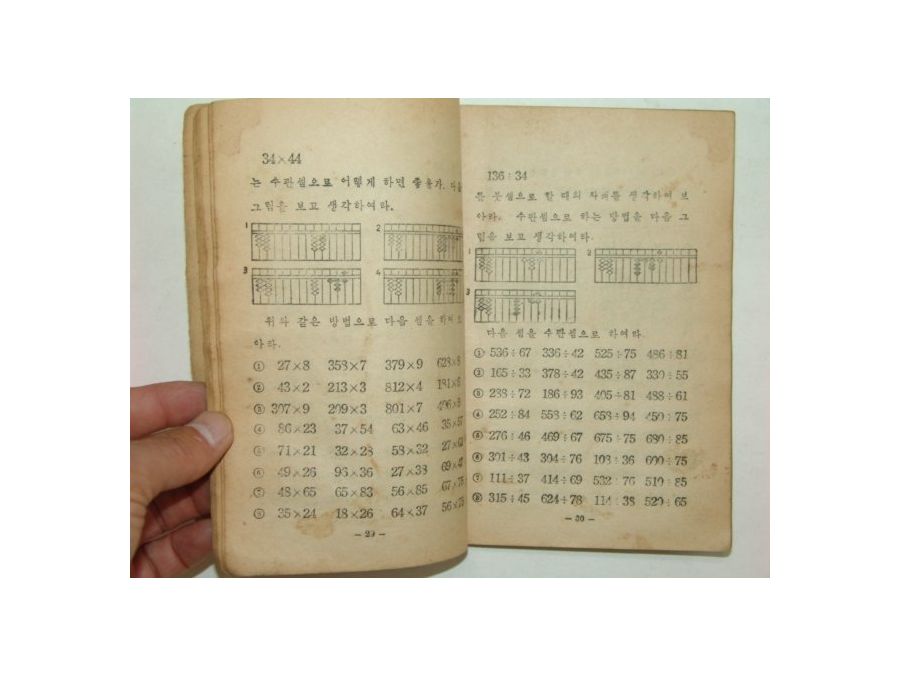 34×44
는 수판셈으로 어떻게 하면 좋을가. 다음
그림을 보고 생각하여라.
1 2
3 4
위와 같은 방법으로 다음 셈을 하여 보
아라.
① 27×8 353×7 379×9 628×8
② 43×2 213×3 812×4 181×6
③ 307×9 209×3 801×7 406×8
④ 86×23 37×54 63×46 35×57
71×21 32×28 58×32
⑥ 49×26 96×36 27×38
48×65 65×83 56×85
35×24 18×26 64×37
— 29 —
136÷34
를 붓셈으로 할 때의 차례를 생각하여 보
아라. 수판셈으로 하는 방법을 다음 그
림을 보고 생각하여라.
1 2
3
다음 셈을 수판셈으로 하여라.
① 536÷67 336÷42 525÷75 486÷81
② 165÷33 378÷42 435÷87 330÷55
③ 288÷72 186÷93 405÷81 488÷61
④ 252÷84 558÷62 658÷94 450÷75
276÷46 469÷67 675÷75 680÷85
301÷43 304÷76 108÷36 600÷75
⑦ 111÷37 414÷69 532÷76 510÷85
⑧ 315÷45 624÷78 114÷38 520÷65
— 30 —